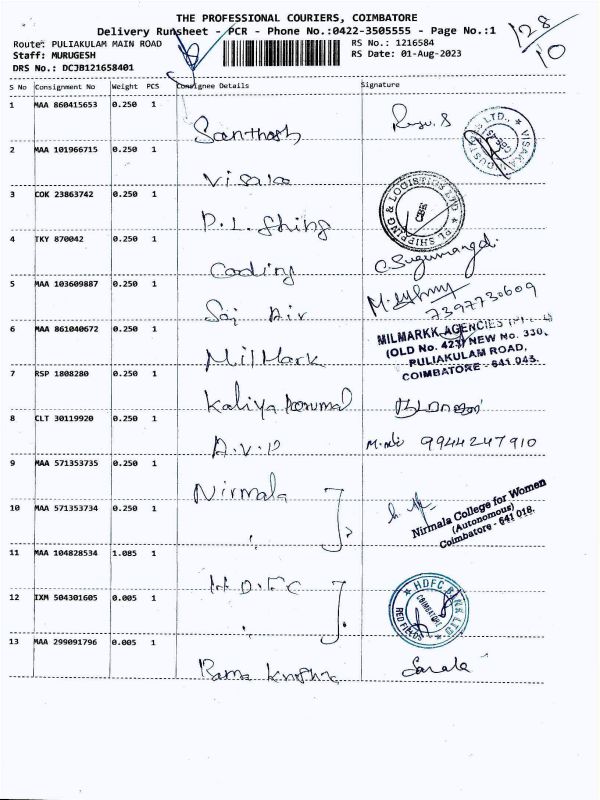 THE PROFESSIONAL COURIERS, COIMBATORE
Delivery Runsheet - PCR - Phone No.:0422-3505555 - Page No.:1
128
10
Route: PULIAKULAM MAIN ROAD
RS No.: 1216584
Staff: MURUGESH
RS Date: 01-Aug-2023
DRS No.: DCJB121658401
S No Consignment No Weight PCS Consignee Details Signature
1 MAA 860415653 0.250 1 Santhosh
2 MAA 101966715 0.250 1 Visaka
3 COK 23863742 0.250 1 P.L. Shing
PL SHIPPING & LOGISTICS LTD
4 TKY 870042 0.250 1 Coding C. Sugumangal.
5 MAA 103609887 0.250 1 Sai Air
7397730609
6 MAA 861040672 0.250 1 MilMark
MILMARKK AGENCIES
(OLD No. 423) NEW No. 330,
PULIAKULAM ROAD,
COIMBATORE - 641 045.
7 RSP 1808280 0.250 1 Kaliya Perumal
8 CLT 30119920 0.250 1 A.V.P 9944247910
9 MAA 571353735 0.250 1 Nirmala
10 MAA 571353734 0.250 1
Nirmala College for Women
(Autonomous)
Coimbatore - 641 018.
11 MAA 104828534 1.085 1 H.D.F.C
12 IXM 504301605 0.005 1
HDFC BANK LTD
COIMBATORE
RED FIELDS
13 MAA 299091796 0.005 1 Rama Krishna Sarala